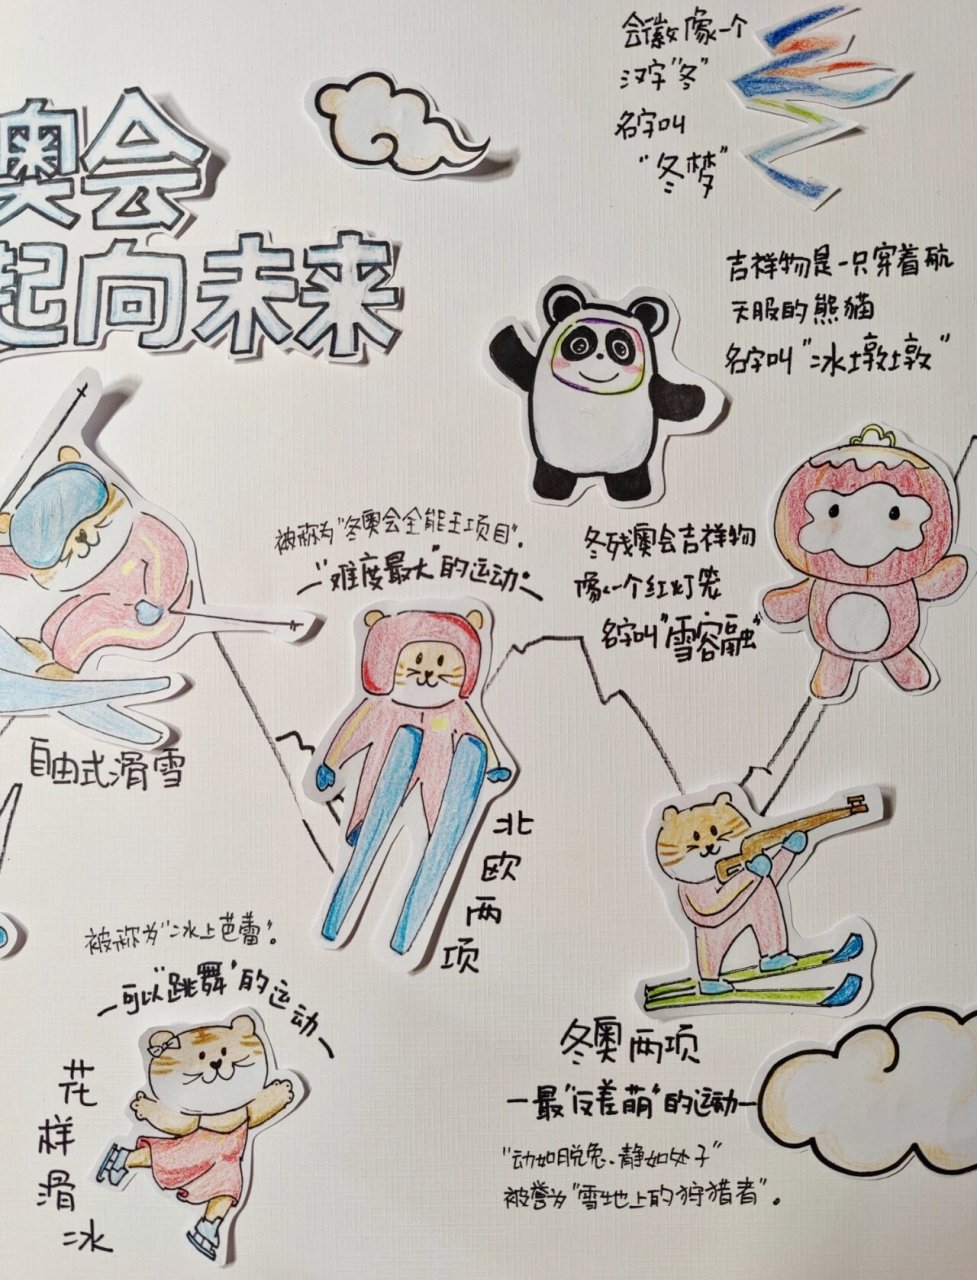 奥会
起向未来
会徽像一个
汉字"冬"
名字叫
"冬梦"
吉祥物是一只穿着航
天服的熊猫
名字叫"冰墩墩"
冬残奥会吉祥物
像一个红灯笼
名字叫"雪容融"
被称为"冬奥会全能王项目".
—"难度最大"的运动—
自由式滑雪
北
欧
两
项
被称为"冰上芭蕾".
—可以"跳舞"的运动—
花
样
滑
冰
冬奥两项
—最"反差萌"的运动—
"动如脱兔、静如处子"
被誉为"雪地上的狩猎者"。